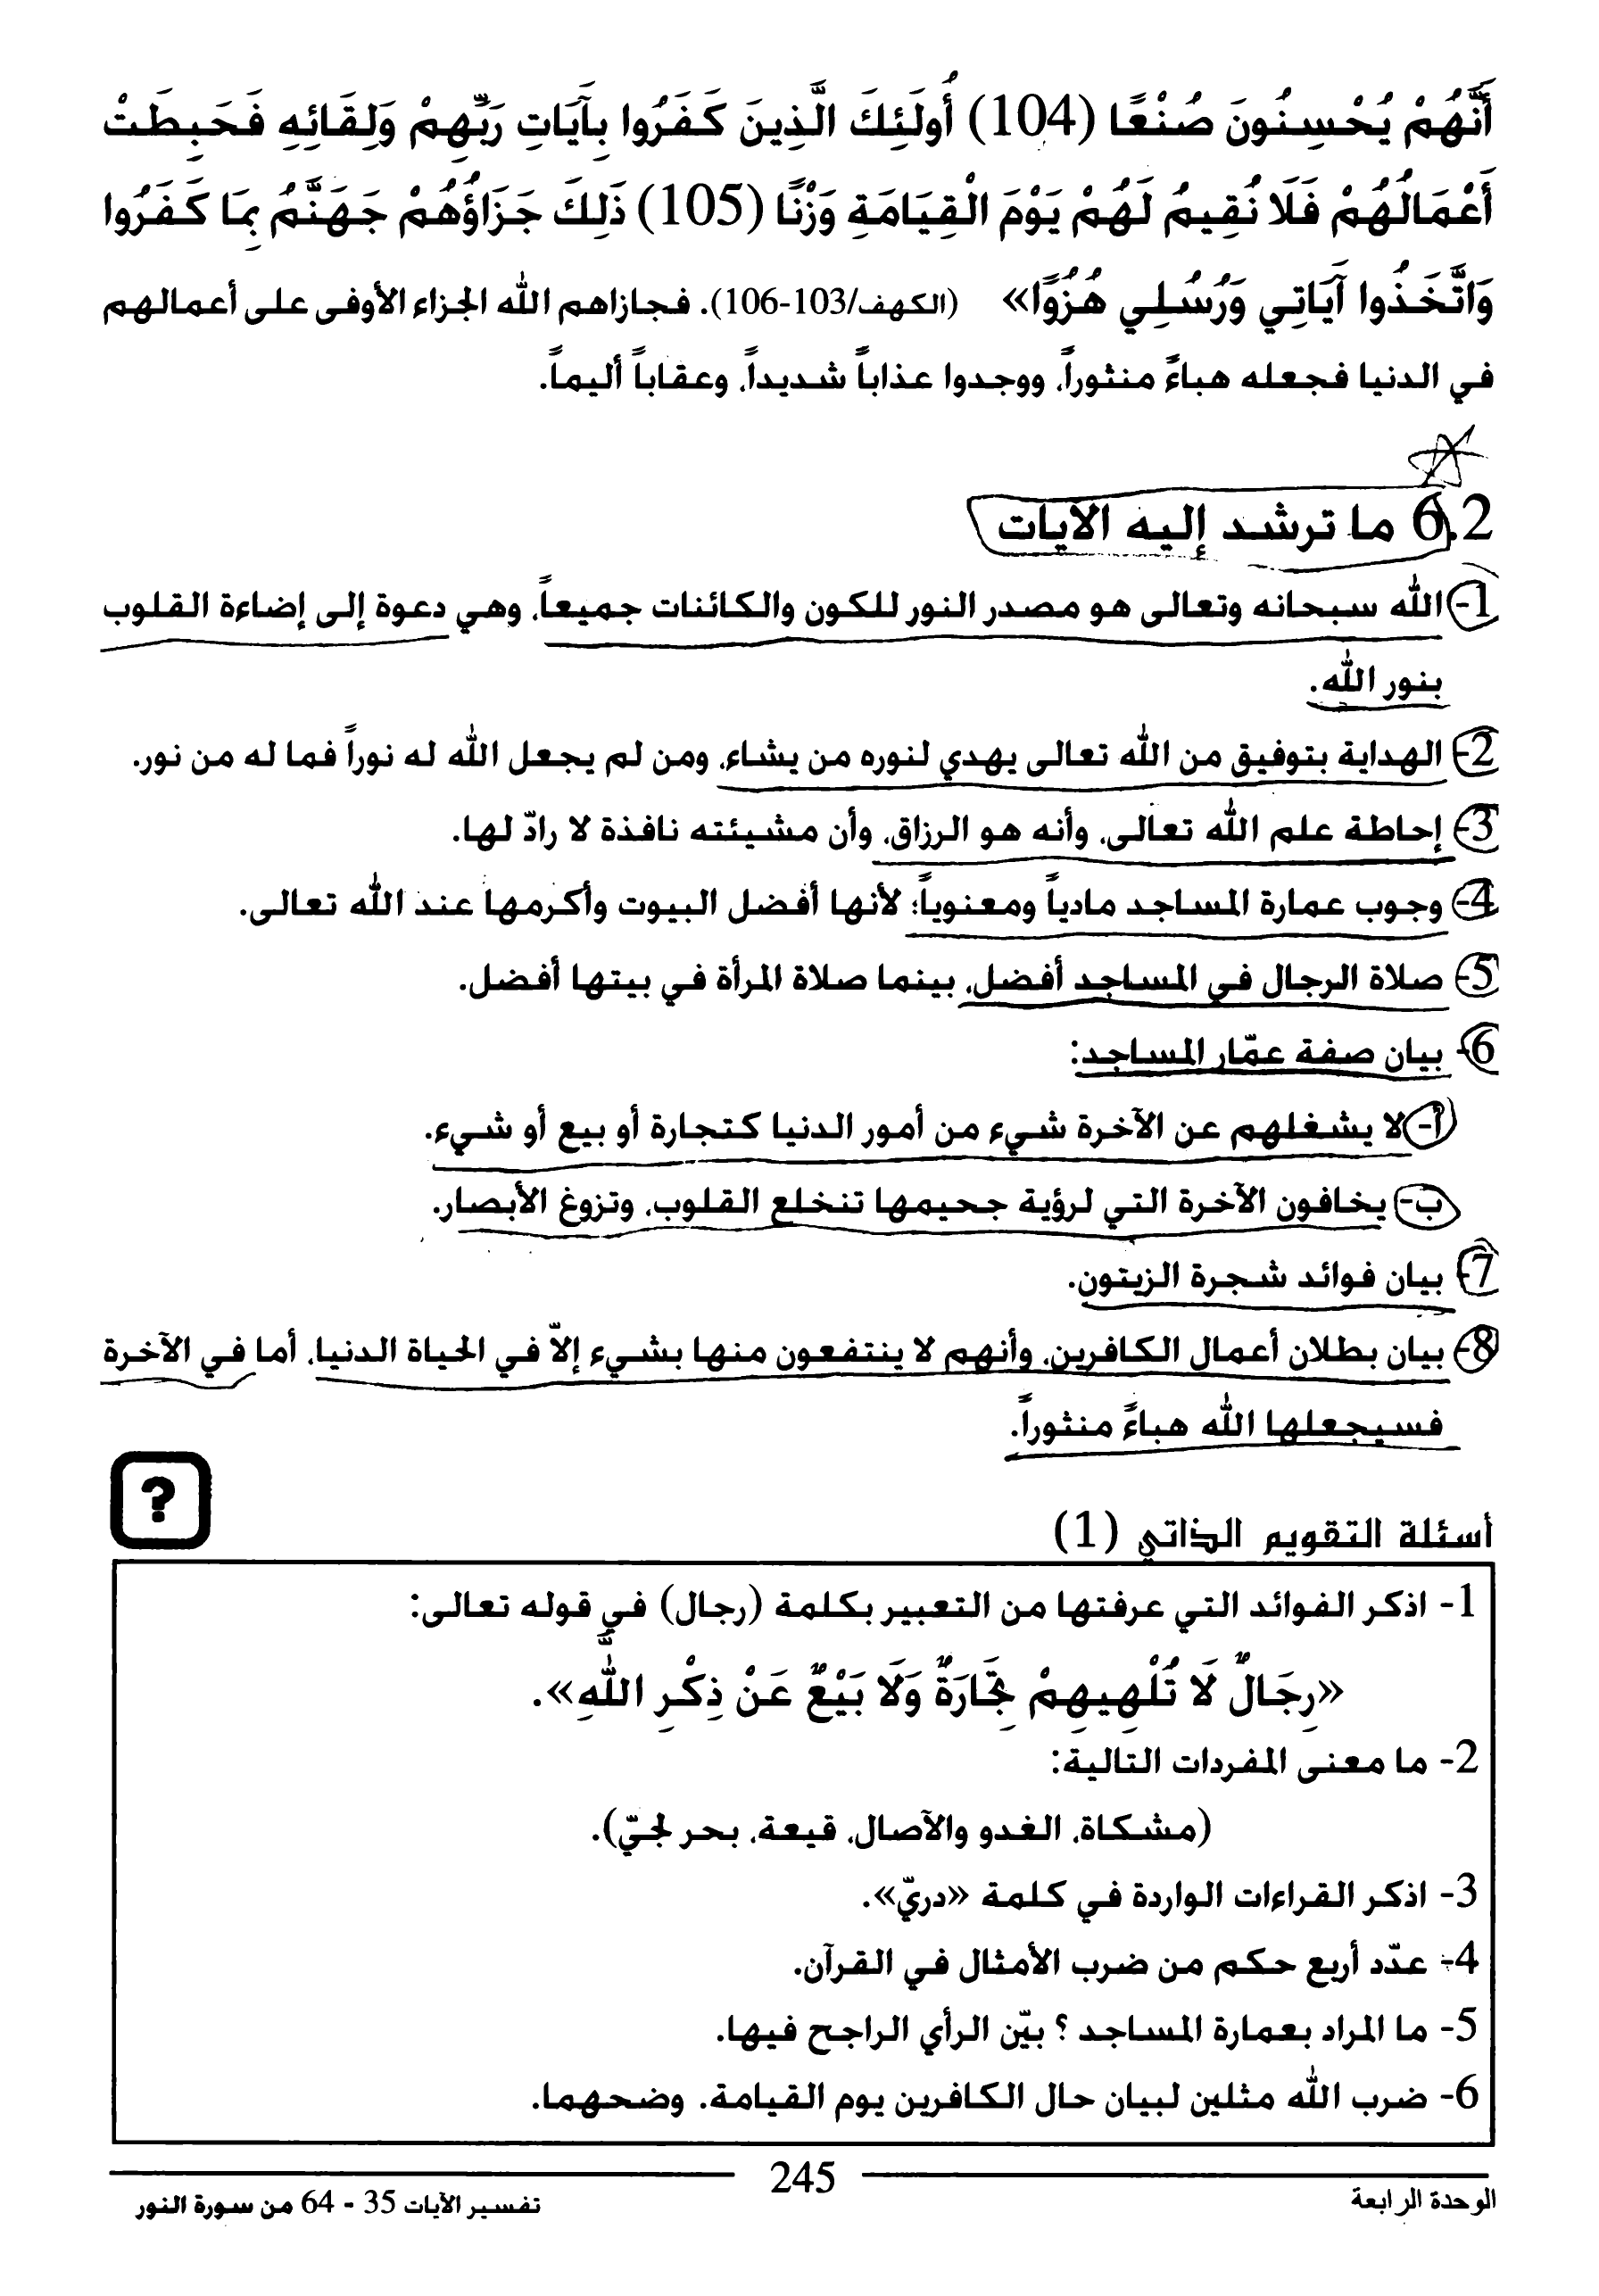 أَنَّهُمْ يُحْسِنُونَ صُنْعًا (104) أُولَئِكَ الَّذِينَ كَفَرُوا بِآَيَاتِ رَبِّهِمْ وَلِقَائِهِ فَحَبِطَتْ
أَعْمَالُهُمْ فَلَا نُقِيمُ لَهُمْ يَوْمَ الْقِيَامَةِ وَزْنًا (105) ذَلِكَ جَزَاؤُهُمْ جَهَنَّمُ بِمَا كَفَرُوا
وَاتَّخَذُوا آَيَاتِي وَرُسُلِي هُزُوًا» (الكهف/103-106). فجازاهم الله الجزاء الأوفى على أعمالهم
في الدنيا فجعله هباءً منثوراً، ووجدوا عذاباً شديداً، وعقاباً أليماً.
6.2 ما ترشد إليه الآيات
1- الله سبحانه وتعالى هو مصدر النور للكون والكائنات جميعاً، وهي دعوة إلى إضاءة القلوب
بنور الله.
2- الهداية بتوفيق من الله تعالى يهدي لنوره من يشاء، ومن لم يجعل الله له نوراً فما له من نور.
3- إحاطة علم الله تعالى، وأنه هو الرزاق، وأن مشيئته نافذة لا رادّ لها.
4- وجوب عمارة المساجد مادياً ومعنوياً؛ لأنها أفضل البيوت وأكرمها عند الله تعالى.
5- صلاة الرجال في المساجد أفضل، بينما صلاة المرأة في بيتها أفضل.
6- بيان صفة عمّار المساجد:
أ- لا يشغلهم عن الآخرة شيء من أمور الدنيا كتجارة أو بيع أو شيء.
ب- يخافون الآخرة التي لرؤية جحيمها تنخلع القلوب، وتزوغ الأبصار.
7- بيان فوائد شجرة الزيتون.
8- بيان بطلان أعمال الكافرين، وأنهم لا ينتفعون منها بشيء إلاّ في الحياة الدنيا، أما في الآخرة
فسيجعلها الله هباءً منثوراً.
?
أسئلة التقويم الذاتي (1)
1- اذكر الفوائد التي عرفتها من التعبير بكلمة (رجال) في قوله تعالى:
«رِجَالٌ لَا تُلْهِيهِمْ تِجَارَةٌ وَلَا بَيْعٌ عَنْ ذِكْرِ اللَّهِ».
2- ما معنى المفردات التالية:
(مشكاة، الغدو والآصال، قيعة، بحر لجيّ).
3- اذكر القراءات الواردة في كلمة «دريّ».
4- عدّد أربع حكم من ضرب الأمثال في القرآن.
5- ما المراد بعمارة المساجد ؟ بيّن الرأي الراجح فيها.
6- ضرب الله مثلين لبيان حال الكافرين يوم القيامة. وضحهما.
الوحدة الرابعة 245 تفسير الآيات 35 - 64 من سورة النور